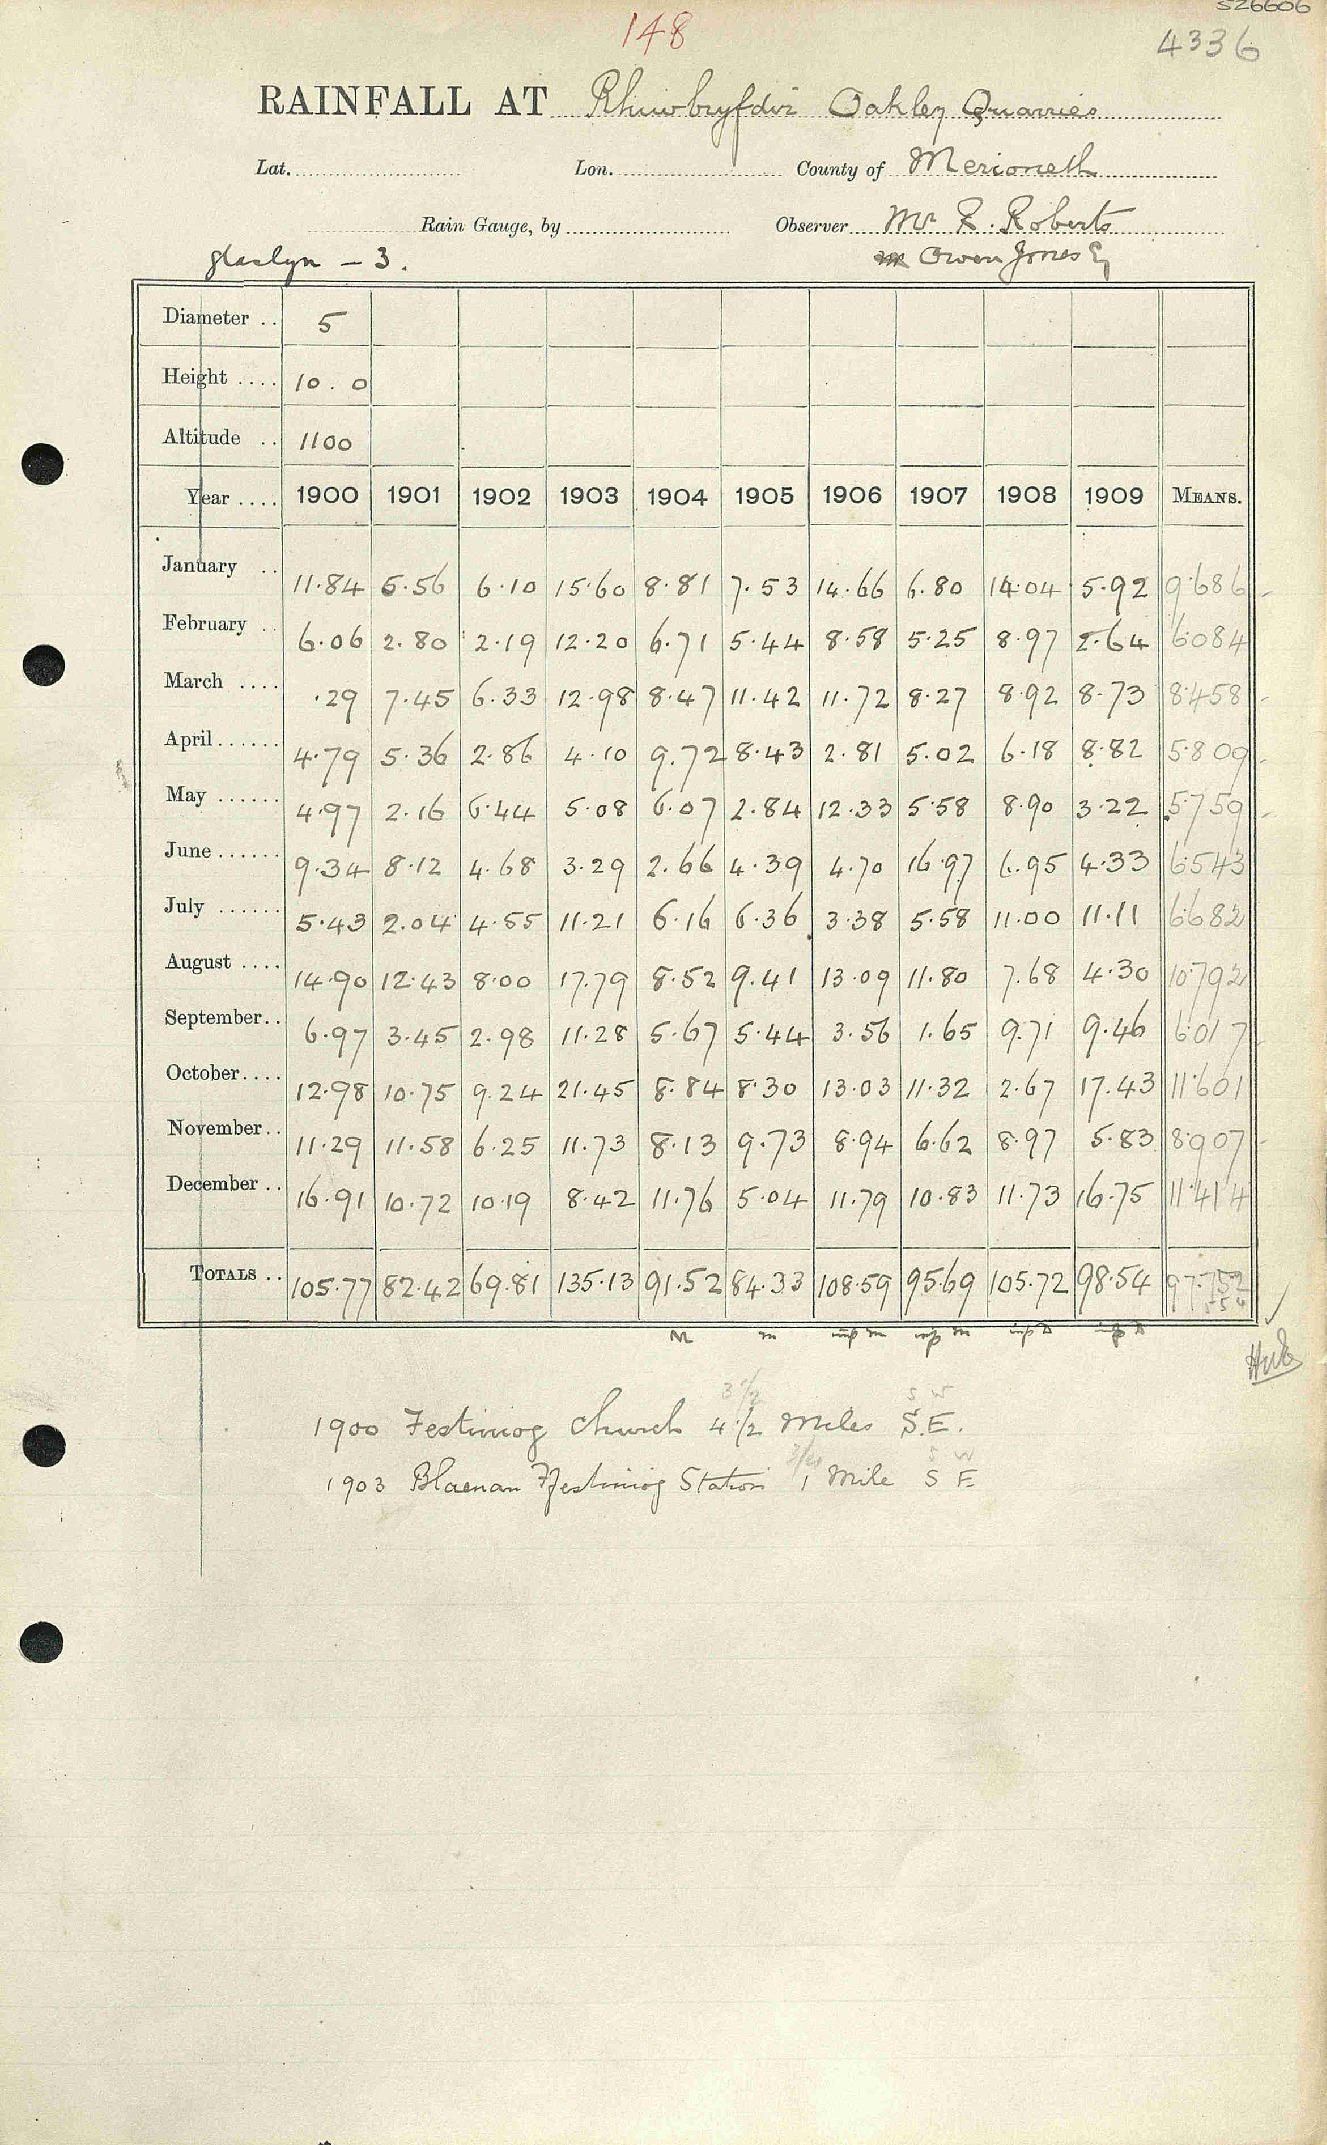 526606
148
4336
RAINFALL AT Rhiwbryfdir Oakley Quarries
Lat. Lon. County of Merioneth
Rain Gauge, by Observer Mr R. Roberts
glaslyn - 3. Owen Jones Eq
Diameter .. 5
Height .... 10.0
Altitude .. 1100
Year .... 1900 1901 1902 1903 1904 1905 1906 1907 1908 1909 MEANS.
January .. 11.84 5.56 6.10 15.60 8.81 7.53 14.66 6.80 14.04 5.92 9.686
February .. 6.06 2.80 2.19 12.20 6.71 5.44 8.58 5.25 8.97 2.64 6.084
March .... .29 7.45 6.33 12.98 8.47 11.42 11.72 8.27 8.92 8.73 8.458
April ...... 4.79 5.36 2.86 4.10 9.72 8.43 2.81 5.02 6.18 8.82 5.809
May ...... 4.97 2.16 6.44 5.08 6.07 2.84 12.33 5.58 8.90 3.22 5.759
June ...... 9.34 8.12 4.68 3.29 2.66 4.39 4.70 16.97 6.95 4.33 6.543
July ...... 5.43 2.04 4.55 11.21 6.16 6.36 3.38 5.58 11.00 11.11 6.682
August .... 14.90 12.43 8.00 17.79 8.52 9.41 13.09 11.80 7.68 4.30 10.792
September.. 6.97 3.45 2.98 11.28 5.67 5.44 3.56 1.65 9.71 9.46 6.017
October.... 12.98 10.75 9.24 21.45 8.84 8.30 13.03 11.32 2.67 17.43 11.601
November.. 11.29 11.58 6.25 11.73 8.13 9.73 8.94 6.62 8.97 5.83 8.907
December .. 16.91 10.72 10.19 8.42 11.76 5.04 11.79 10.83 11.73 16.75 11.414
TOTALS .. 105.77 82.42 69.81 135.13 91.52 84.33 108.59 95.69 105.72 98.54 97.752
3 1/2 S W
1900 Festiniog Church 4 1/2 Miles S.E.
3/4 S W
1903 Blaenau Ffestiniog Station 1 Mile S E